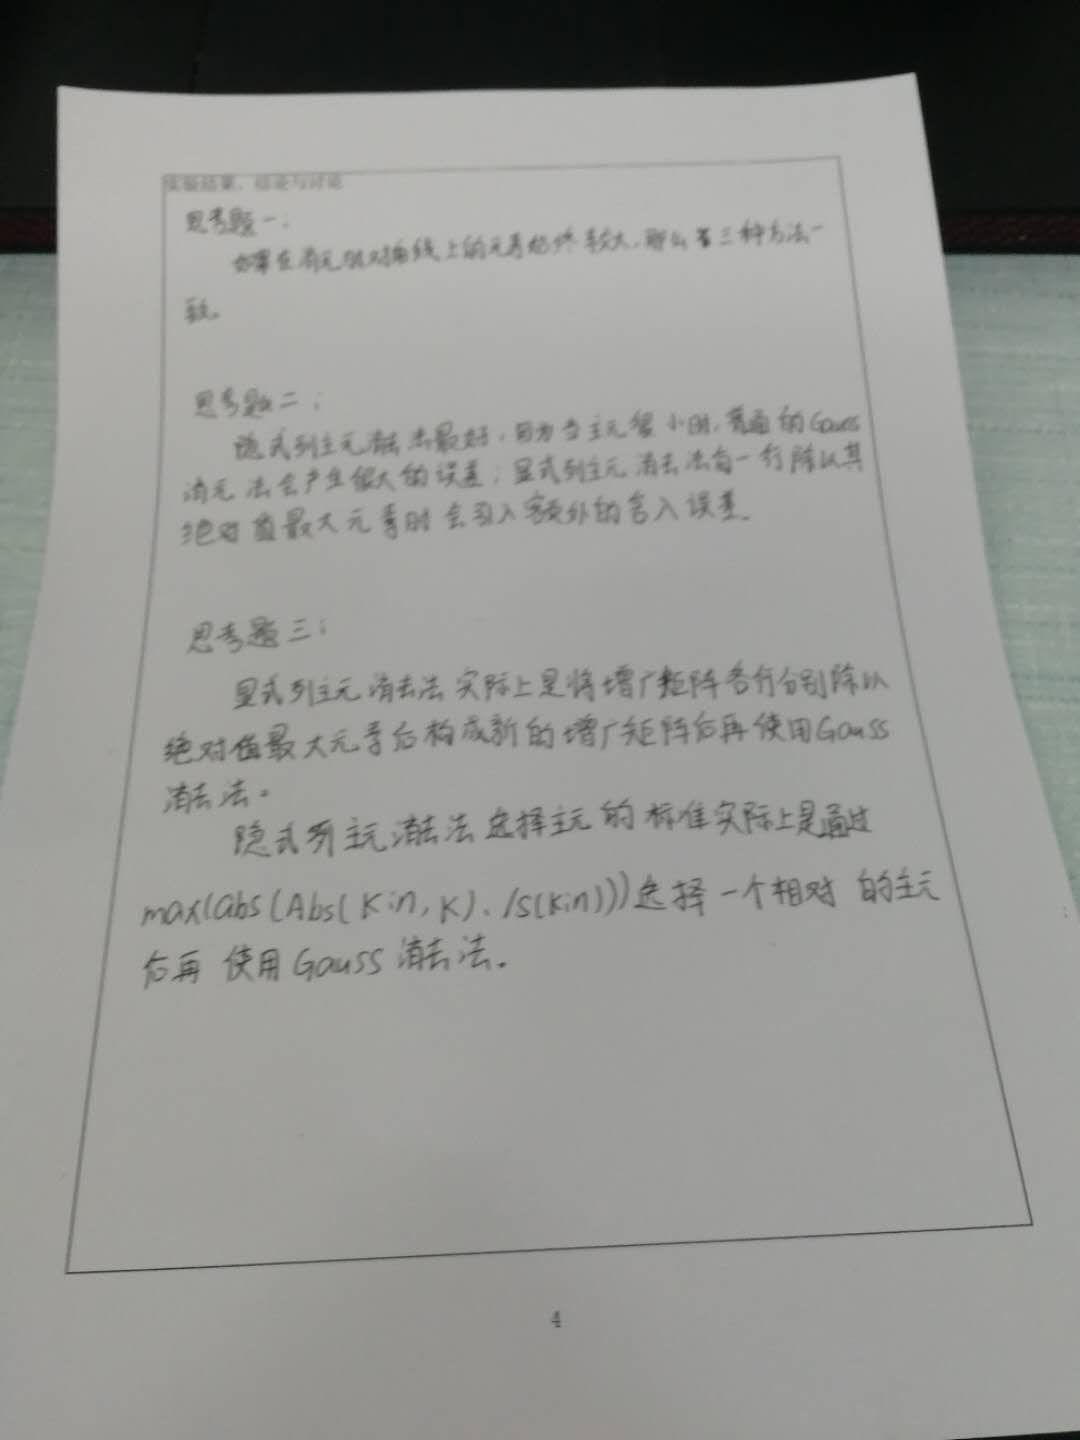 实验结果、结论与讨论
思考题一:
如果在消元时对角线上的元素始终较大,那么第三种方法一
致。
思考题二:
隐式列主元消去法最好,因为当主元很小时,普通的Gauss
消元法会产生很大的误差;显式列主元消去法每一行除以其
绝对值最大元素时会引入额外的舍入误差.
思考题三:
显式列主元消去法实际上是将增广矩阵各行分别除以
绝对值最大元素后构成新的增广矩阵后再使用Gauss
消去法。
隐式列主元消去法选择主元的标准实际上是通过
max(abs(Abs(kin,k)./s(kin)))选择一个相对的主元
后再使用Gauss消去法.
4